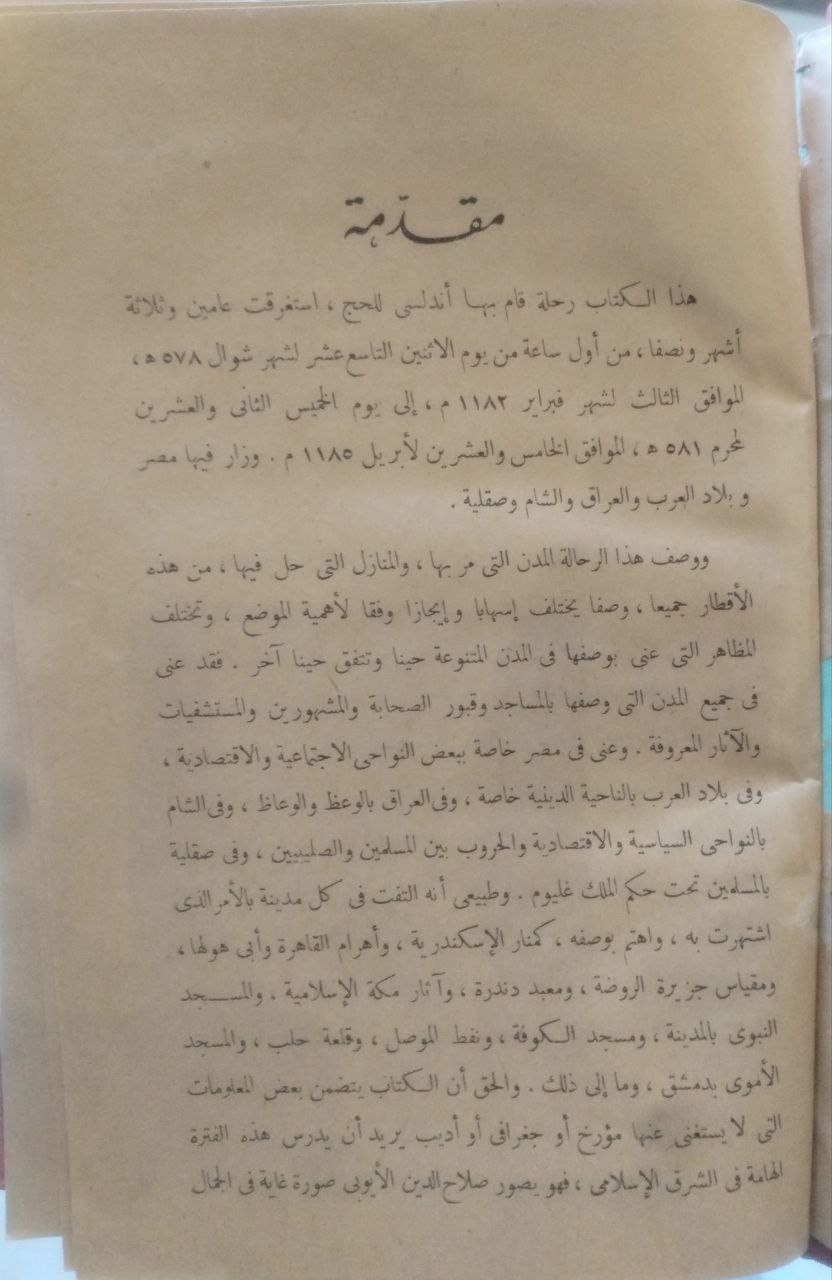 مقدّمة
هذا الكتاب رحلة قام بها أندلسى للحج ، استغرقت عامين وثلاثة
أشهر ونصفا ، من أول ساعة من يوم الاثنين التاسع عشر لشهر شوال ٥٧٨ ه ،
الموافق الثالث لشهر فبراير ١١٨٢ م ، إلى يوم الخميس الثانى والعشرين
لمحرم ٥٨١ ه ، الموافق الخامس والعشرين لأبريل ١١٨٥ م . وزار فيها مصر
وبلاد العرب والعراق والشام وصقلية .
ووصف هذا الرحالة المدن التى مر بها ، والمنازل التى حل فيها ، من هذه
الأقطار جميعا ، وصفا يختلف إسهابا وإيجازا وفقا لأهمية الموضع ، وتختلف
المظاهر التى عنى بوصفها فى المدن المتنوعة حينا وتتفق حينا آخر . فقد عنى
فى جميع المدن التى وصفها بالمساجد وقبور الصحابة والمشهورين والمستشفيات
والآثار المعروفة . وعنى فى مصر خاصة ببعض النواحى الاجتماعية والاقتصادية ،
وفى بلاد العرب بالناحية الدينية خاصة ، وفى العراق بالوعظ والوعاظ ، وفى الشام
بالنواحى السياسية والاقتصادية والحروب بين المسلمين والصليبيين ، وفى صقلية
بالمسلمين تحت حكم الملك غليوم . وطبيعى أنه التفت فى كل مدينة بالأمر الذى
اشتهرت به ، واهتم بوصفه ، كمنار الإسكندرية ، وأهرام القاهرة وأبى هولها ،
ومقياس جزيرة الروضة ، ومعبد دندرة ، وآثار مكة الإسلامية ، والمسجد
النبوى بالمدينة ، ومسجد الكوفة ، ونفط الموصل ، وقلعة حلب ، والمسجد
الأموى بدمشق ، وما إلى ذلك . والحق أن الكتاب يتضمن بعض المعلومات
التى لا يستغنى عنها مؤرخ أو جغرافى أو أديب يريد أن يدرس هذه الفترة
الهامة فى الشرق الإسلامى ، فهو يصور صلاح الدين الأيوبى صورة غاية فى الجمال